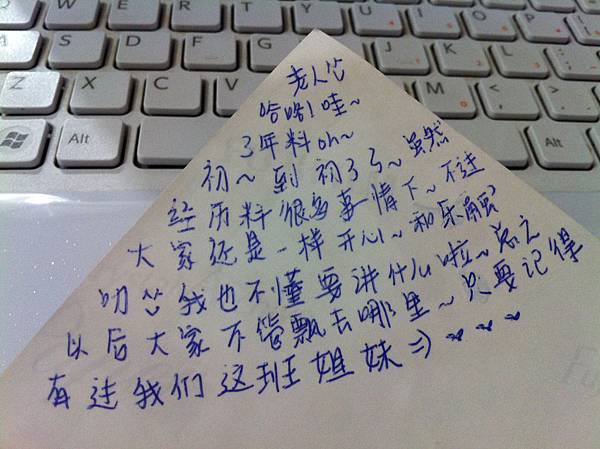 W E R T Y U I O P
A S D F J K L
Z X C M
Alt Alt
老人
哈啰!哇~
3年料oh~
初~到初3了~虽然
经历料很多事情下~不过
大家还是一样开心~和乐融
我也不懂要讲什么啦~总之
以后大家不管飘去哪里~只要记得
有过我们这班姐妹=)~~~